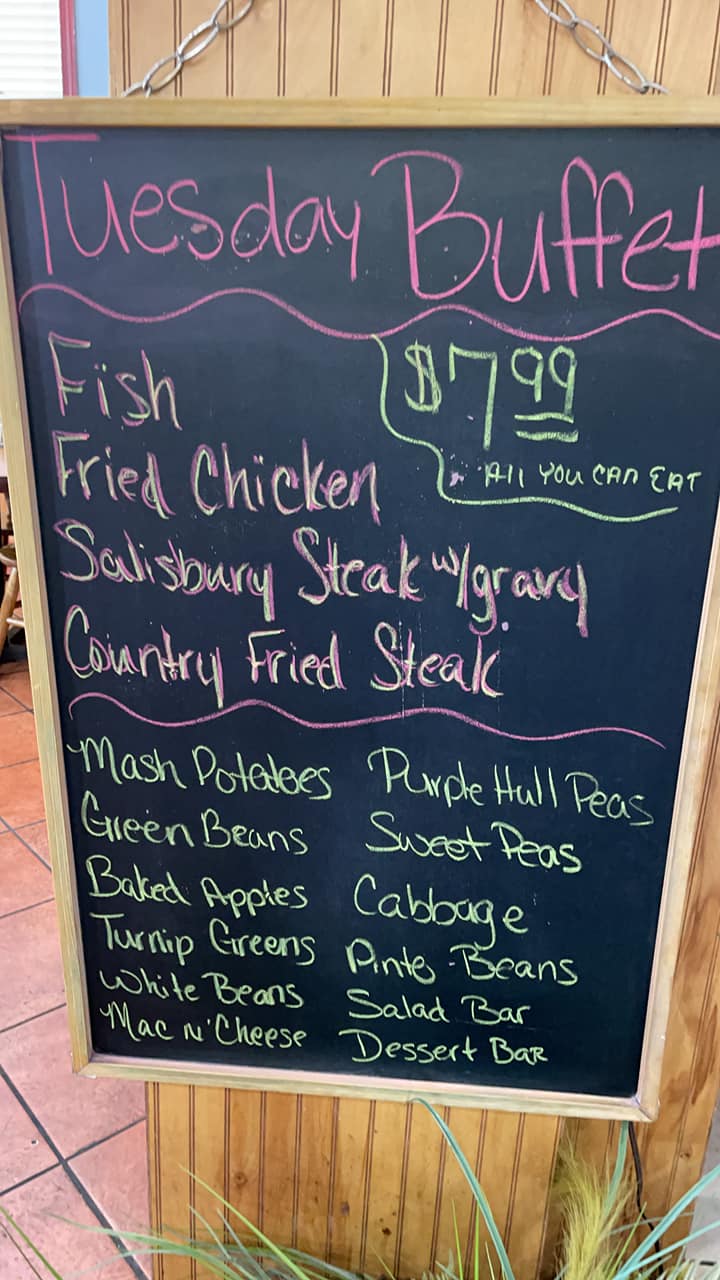 Tuesday Buffet
$7.99
All You Can Eat
Fish
Fried Chicken
Salisbury Steak w/gravy
Country Fried Steak
Mash Potatoes
Green Beans
Baked Apples
Turnip Greens
White Beans
Mac N' Cheese
Purple Hull Peas
Sweet Peas
Cabbage
Pinto-Beans
Salad Bar
Dessert Bar